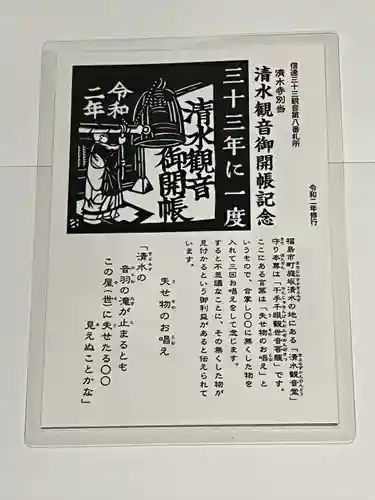 信達三十三観音第八番札所
清水寺別当
清水観音御開帳記念
令和二年修行
三十三年に一度
清水観音
御開帳
令和
二年
福島市町庭坂清水の地にある「清水観音堂」
守り本尊は「千手千眼観世音菩薩」です。
ここにある言葉は「失せ物のお唱え」と
いうもので、合掌し〇〇に無くした物を
入れて三回お唱えをして念じます。
すると不思議なことに、その無くした物が
見付かるという御利益があると伝えられて
います。
失せ物のお唱え
「清水の
音羽の滝が止まるとも
この屋(世)に失せたる〇〇
見えぬことかな」